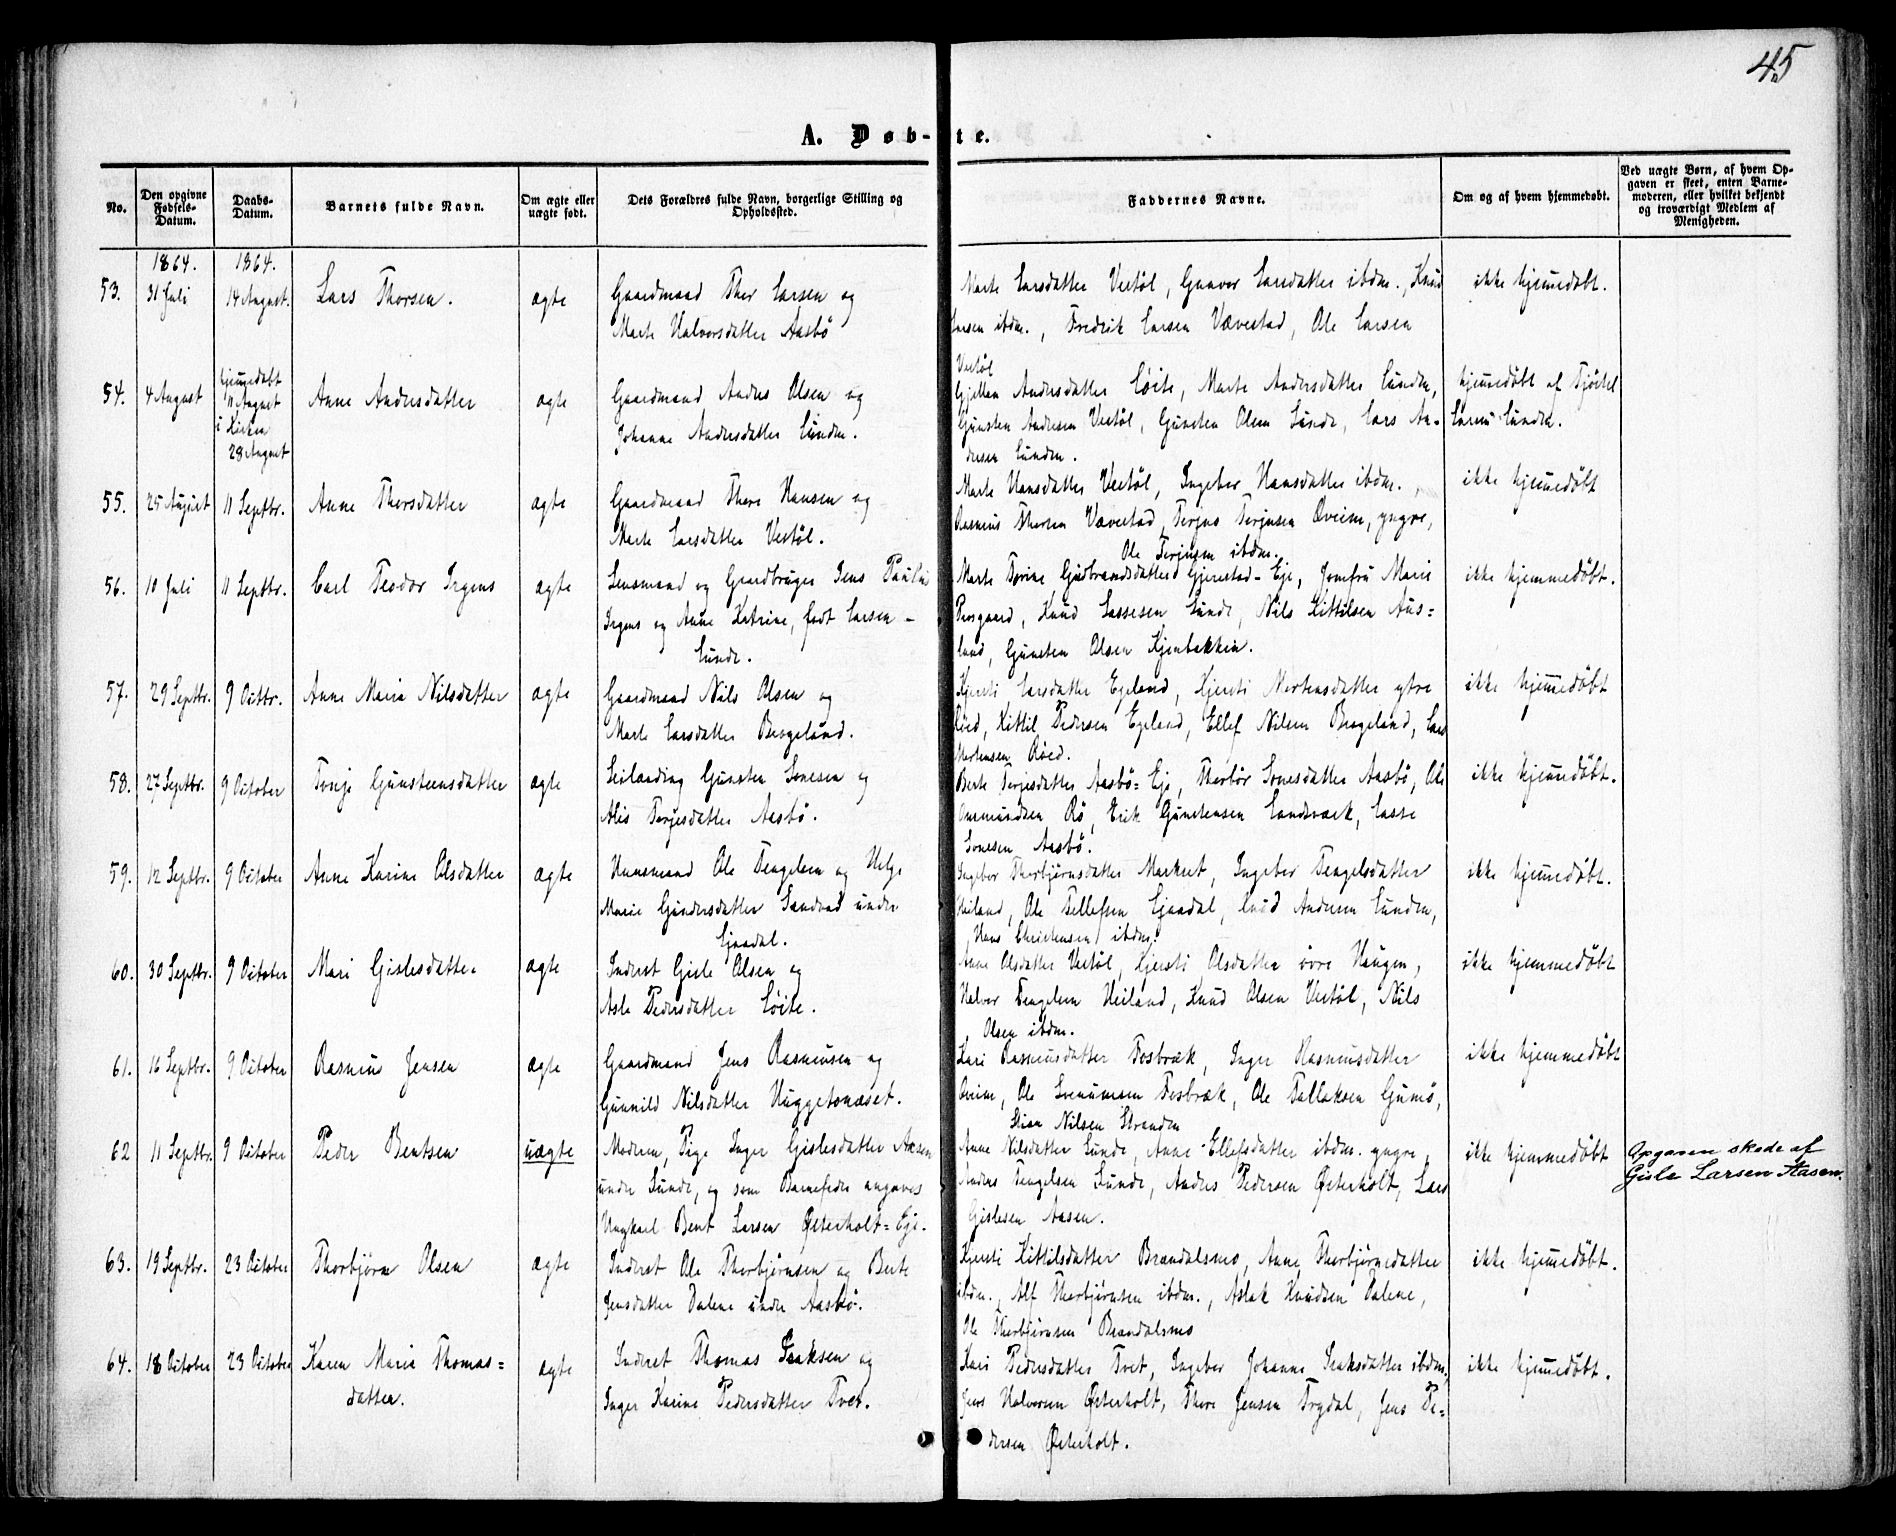 45
A. Døb-te.
No.
Den opgivne Fødsels-Datum.
Daabs-Datum.
Barnets fulde Navn.
Om ægte eller uægte født.
Dets Forældres fulde Navn, borgerlige Stilling og Opholdssted.
Faddernes Navne.
Om og af hvem hjemmedøbt.
Ved uægte Børn, af hvem Opgaven er skeet, enten Barnemoderen, eller hvilket bekjendt og troværdigt Medlem af Menigheden.
1864. 1864.
53. 31 Juli 14 August. Lars Thorsen. ægte Gaardmand Thor Larsen og
Marte Halvorsdatter Aasbø
Marte Larsdatter Vestøl, Gunvor Larsdatter ibdm., Knud
Larsen ibdm., Fredrik Larsen Vævestad, Ole Larsen
Vestøl
ikke hjemmedøbt.
54. 4 August hjemmedøbt
11 August
i Kirken
28 August
Anne Andersdatter ægte Gaardmand Anders Olsen og
Johanne Andersdatter Lunden.
Andersdatter Løite, Marte Andersdatter Lunden,
Gunsten Andersen Vestøl, Gunsten Olsen Lunde, Lars An-
dersen Lunden.
hjemmedøbt af
Larsen Lunden.
55. 25 August 11 Septbr. Anne Thorsdatter ægte Gaardmand Thore Hansen og
Marte Larsdatter Vestøl.
Marte Hansdatter Vestøl, Ingebor Hansdatter ibdm.,
Rasmus Thorsen Vævestad, Terjus Terjusen Qveim, yngre,
Ole Terjusen ibdm.
ikke hjemmedøbt
56. 10 Juli 11 Septbr. Carl Teodor Irgens ægte Lensmand og Gaardbruger Jens
Irgens og Anne Katrine, født Larsen -
Lunde.
Marte Torine Gudbrandsdatter Gjerestad-Eje, Jomfru Marie
Knud Lassesen Lunde, Nils Kittilsen Aus=
land, Gunsten Olsen Kjenbakken.
ikke hjemmedøbt.
57. 29 Septbr. 9 Octbr. Anne Maria Nilsdatter ægte Gaardmand Nils Olsen og
Marte Larsdatter Brogeland.
Kjersti Larsdatter Egeland, Kjersti Mortensdatter ytre
Røed, Kittil Pedersen Egeland, Ellef Nilsen Brogeland, Lars
Mortensen Røed.
ikke hjemmedøbt
58. 27 Septbr. 9 October Gunsteensdatter ægte Leilænding Gunsten Sonesen og
Alis Terjesdatter Aasbø.
Berte Terjesdatter Aasbø=Eje, Thorbør Sonesdatter Aasbø, Ole
Ommundsen Rø, Erik Gunstensen Landsværk, Lasse
Sonesen Aasbø.
ikke hjemmedøbt.
59. 12 Septbr. 9 October Anne Karine Olsdatter ægte Huusmand Ole Tengelsen og Helge
Marie Gundersdatter Sandvad under
Ejaadal.
Ingebor Thorbjørnsdatter Markset, Ingebor Tengelsdatter
Heiland, Ole Tellefsen Ejaadal, Knud Andersen Lunden,
Hans Christensen ibdm.
ikke hjemmedøbt.
60. 30 Septbr. 9 October Mari Gislesdatter ægte Inderst Gisle Olsen og
Asle Pedersdatter Løite.
Anne Olsdatter Vestøl, Kjersti Olsdatter øvre Haugen,
Halvor Tengelsen Heiland, Knud Olsen Vestøl, Nils
Olsen ibdm.
ikke hjemmedøbt
61. 16 Septbr. 9 October Rasmus Jensen ægte Gaardmand Jens Rasmusen og
Gunnild Nilsdatter Huggetonæset.
Kari Rasmusdatter Fosbræk, Inger Rasmusdatter
Qveim, Ole Svenumsen Fosbræk, Ole Tallaksen Gumø,
Stian Nilsen Stranden
ikke hjemmedøbt
62 11 Septbr. 9 October Peder Bentsen uægte Moderen, Pige Inger Gislesdatter Aasen
under Lunde, og som Barnefader angaves
Ungkarl Bent Larsen Østerholt=Eje.
Anne Nilsdatter Lunde, Anne Ellefsdatter ibdm. yngre,
Anders Tengelsen Lunde, Anders Pedersen Østerholt, Lars
Gislesen Aasen.
ikke hjemmedøbt Opgaven skede af
Gisle Larsen Aasen.
63. 19 Septbr. 23 October Thorbjørn Olsen ægte Inderst Ole Thorbjørnsen og Berte
Jensdatter Dalene under Aasbø.
Kjersti Kittilsdatter Brandalsmo, Anne Thorbjørnsdatter
ibdm., Alf Thorbjørnsen ibdm., Aslak Knudsen Dalene,
Ole Thorbjørnsen Brandalsmo
ikke hjemmedøbt.
64. 18 October 23 October Karen Maria Thomas=
datter. ægte Inderst Thomas Isaksen og
Inger Karine Pedersdatter Tvet.
Kari Pedersdatter Tvet, Ingebor Johanne Isaksdatter ibdm.
Jens Halvorsen Østerholt, Thore Jensen Trydal, Jens Pe=
dersen Østerholt.
ikke hjemmedøbt.